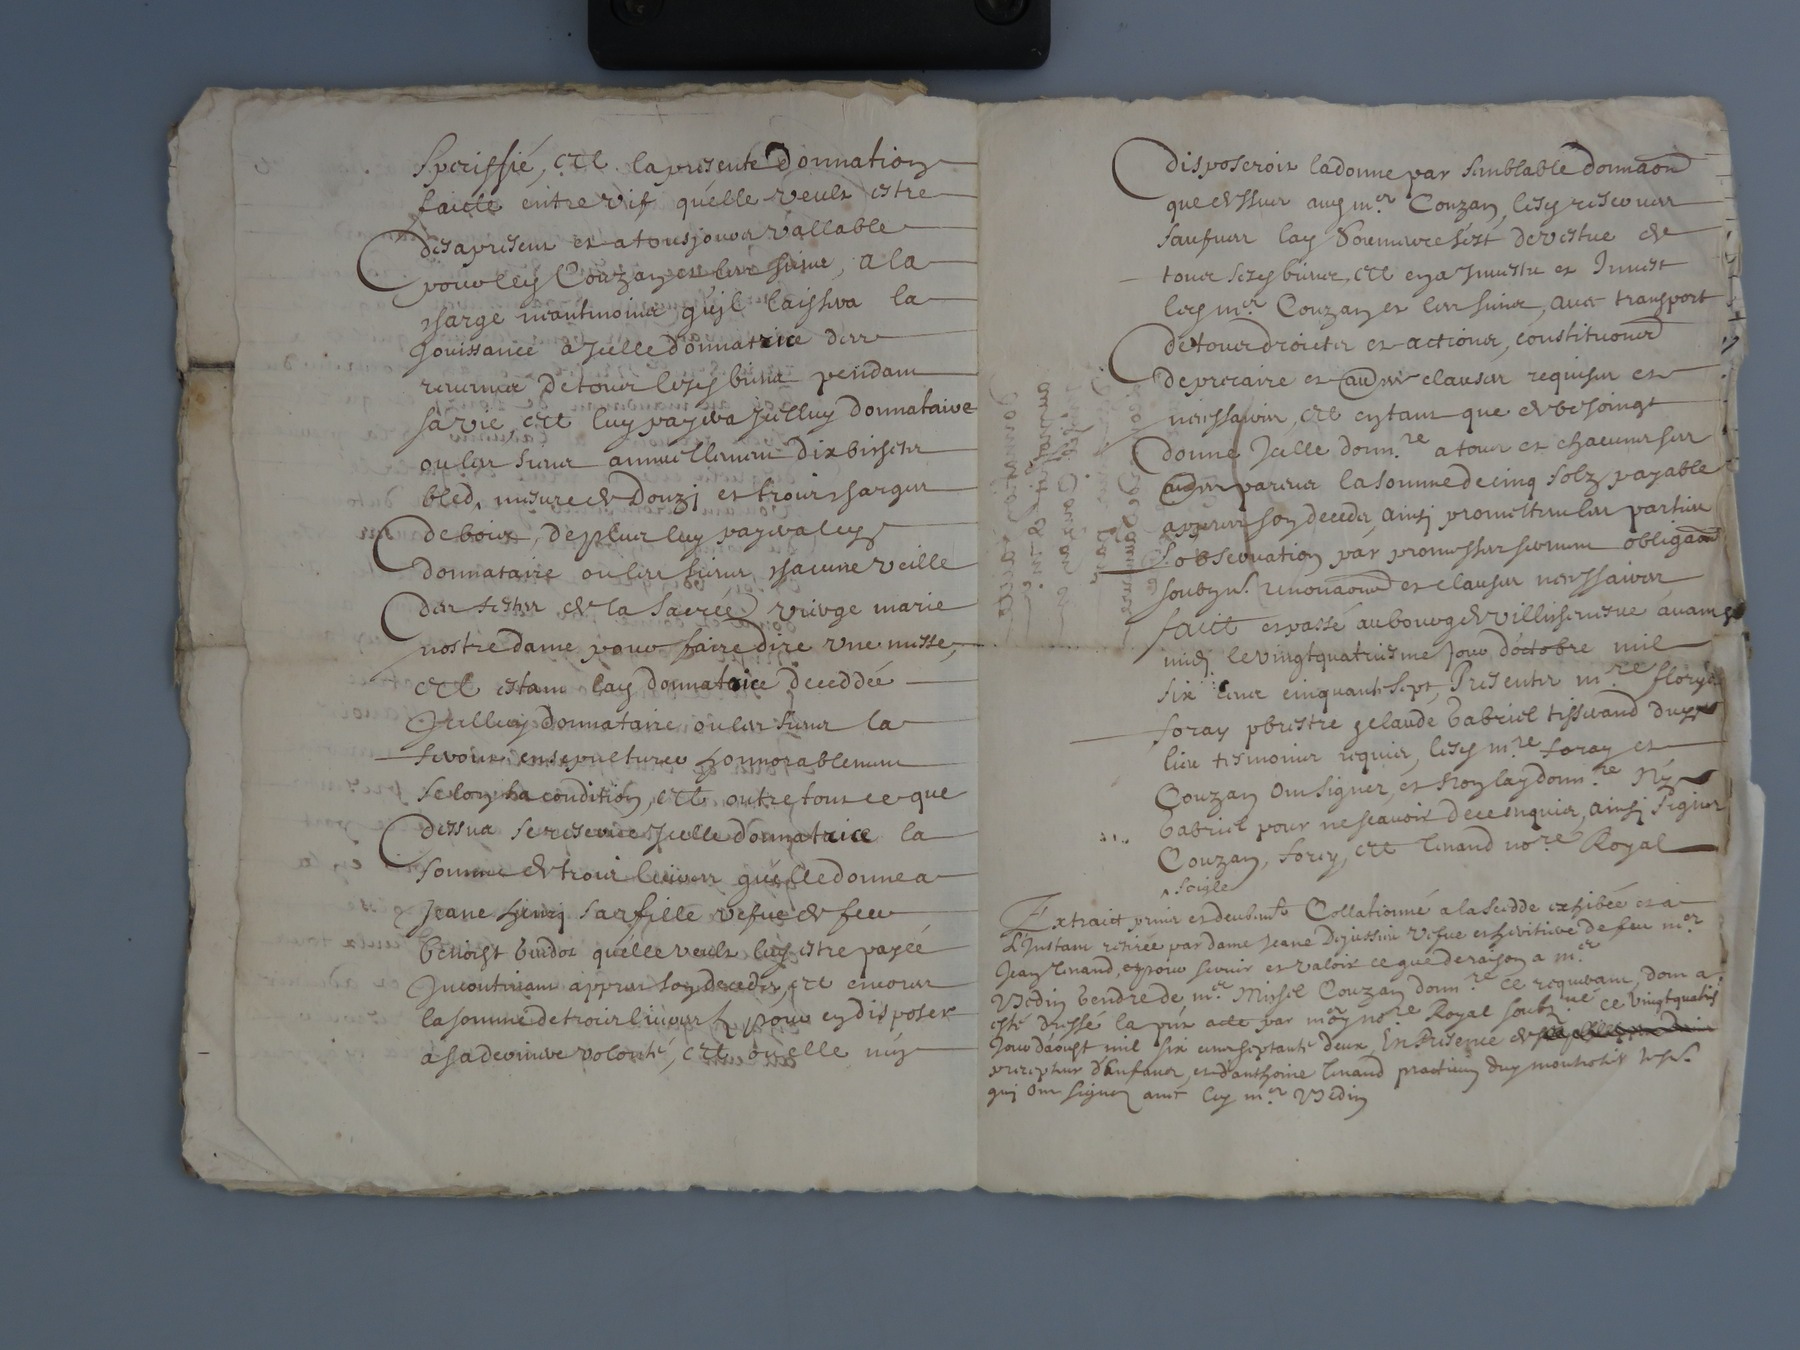 speciffié, Et la presente donnation
faicte entre vif quelle veult estre
desapresent et a tousjours vallable
pour led Couzan et les siens, a la
charge neantmoins quil laissera la
Jouissance a Icelle donnatrice des
revenus de tous lesd biens pendant
sa vie, Et luy payera Icelluy donnataire
ou les siens annuellement dix bichetz
bled, mesure de Donzi et trois charges
de bois, de plus luy payera led
donnataire ou les siens, chacune veille
des festes de la sacrée vierge marie
nostre dame pour faire dire une messe,
Et estant lad donnatrice deceddée
Icelluy donnataire ou les siens la
feront ensepulturer honnorablement
selon sa condition, Et outre tout ce que
dessus se reserve Icelle donnatrice la
somme de trois livres quelle donne a
Jeane sa fille vefve de feu
benoist quelle veult luy estre payée
Incontinant appres son decedz, Et encores
la somme de trois livres pour en disposer
a sa derniere volonté, Et ou elle ny
disposeroit la donne par semblable donnaon
que dessus aud mr Couzan, lesd reserves
saufves lad sest devestue de
tous sesd biens, Et en a Investu et Invest
led mr Couzan et les siens, avec transport
de tous droictz et actions, constitutions
de precaire et aultres clauses requises et
necessaires, Et en tant que de besoingt
donne Icelle donn.re a tous et chacuns ses
aultres parens la somme de cinq solz payable
appres son decedz, ainsi promettent les parties
l'observation par promesses serment obligaon
soubzm. renonaons et clauses necessaires
faict et passé au bourg de avant
midi le vingtquatriesme Jour d'octobre mil
six cens cinquante sept, Presentz m.re flory
foray prestre et claude Gabriel tisserand dud
lieu tesmoins requis, lesd m.re foray et
Couzan ont signez, et non lad donn.re Ny
Gabriel pour ne scavoir de ce enquis, ainsi signez
Couzan, forey, Et no.re Royal
Extraict prins et deubm.t Collationné a la scedde exhibée et a
L'Instant retirée par dame Jeane vefve et heritiere de feu m.er
Jean, et pour servir et valoir ce que de raison a m.er
Vedin Gendre de m.er Michel Couzan donn.re ce requerant, dont a
esté dressé le pnt acte par moy no.re Royal soubz.né ce vingtquatre
Jour d'aoust mil six cens septante deux, En Presence de
precepteur d'Enfans, et d'anthoine practicien dud
qui ont signez avec led m.er Vedin